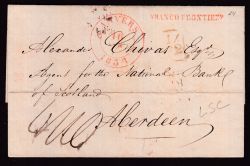 FRANCO FRONTIERE
ANVERS
1834
Alexander Chivas Esqr
Agent for the National Bank
of Scotland
Aberdeen
LSC